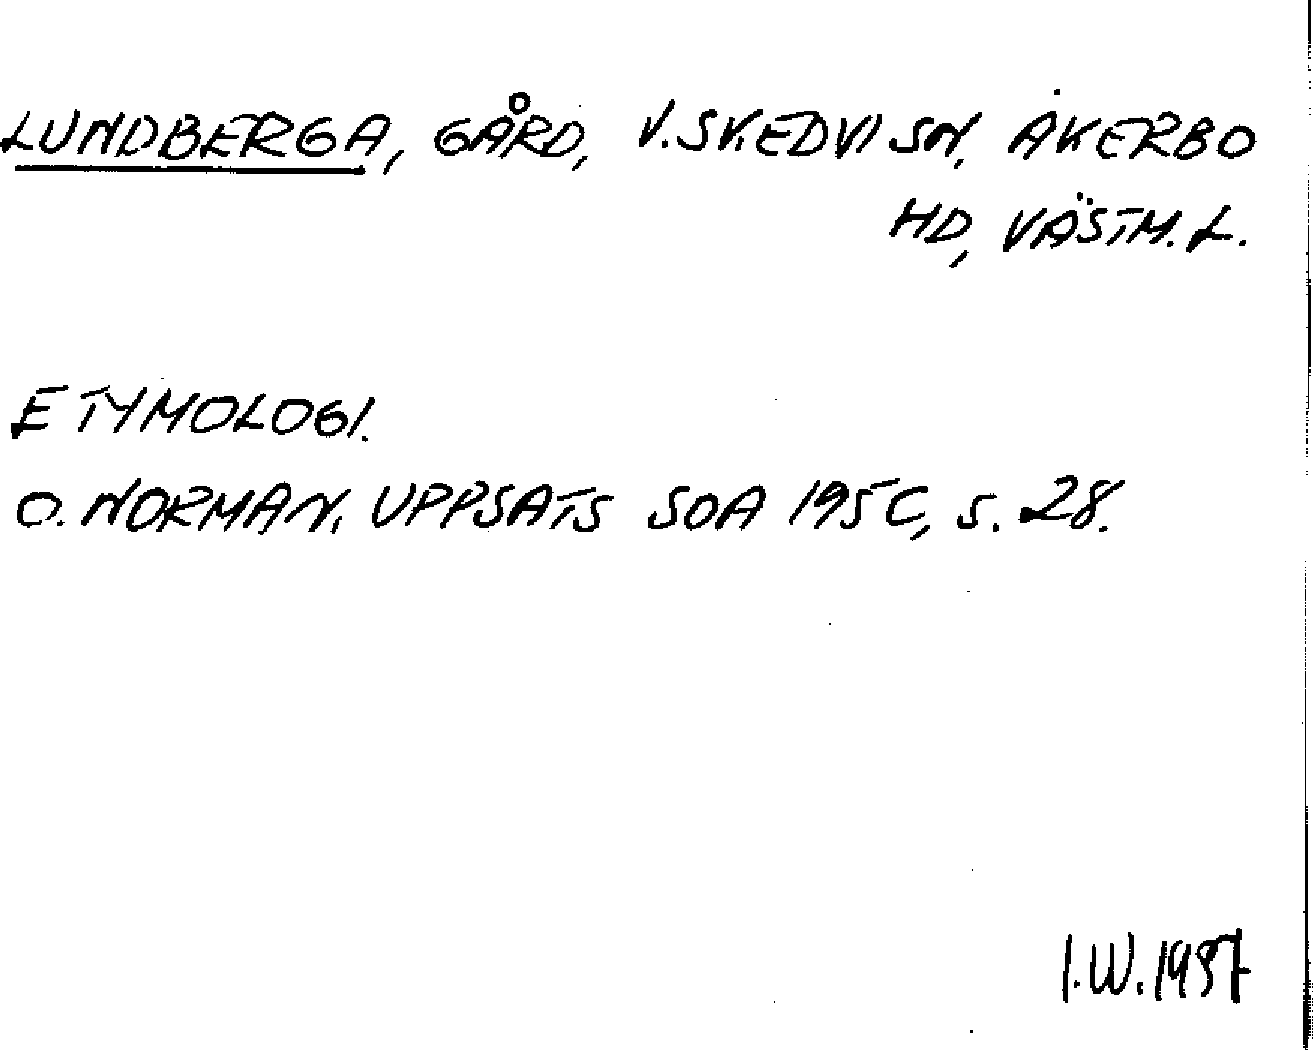 LUNDBERGA, GÅRD, V. SKEDVI SN, ÅKERBO
HD, VÄSTM. L.
ETYMOLOGI.
O. NORMAN, UPPSATS SOA 195C, S. 28.
I.W. 1957